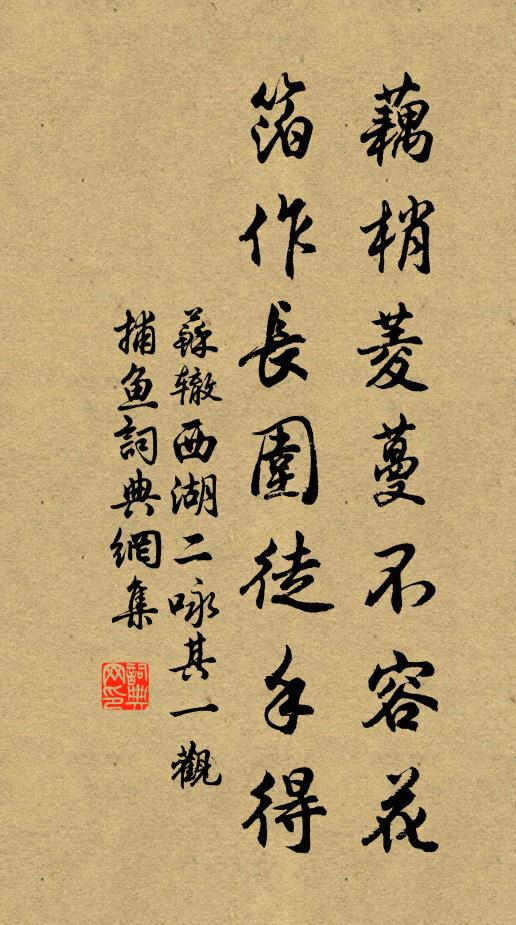 藕梢菱蔓不容花
箔作長圍徒手得
蘇轍西湖二咏其一觀
捕魚詞典網集
詞典网印